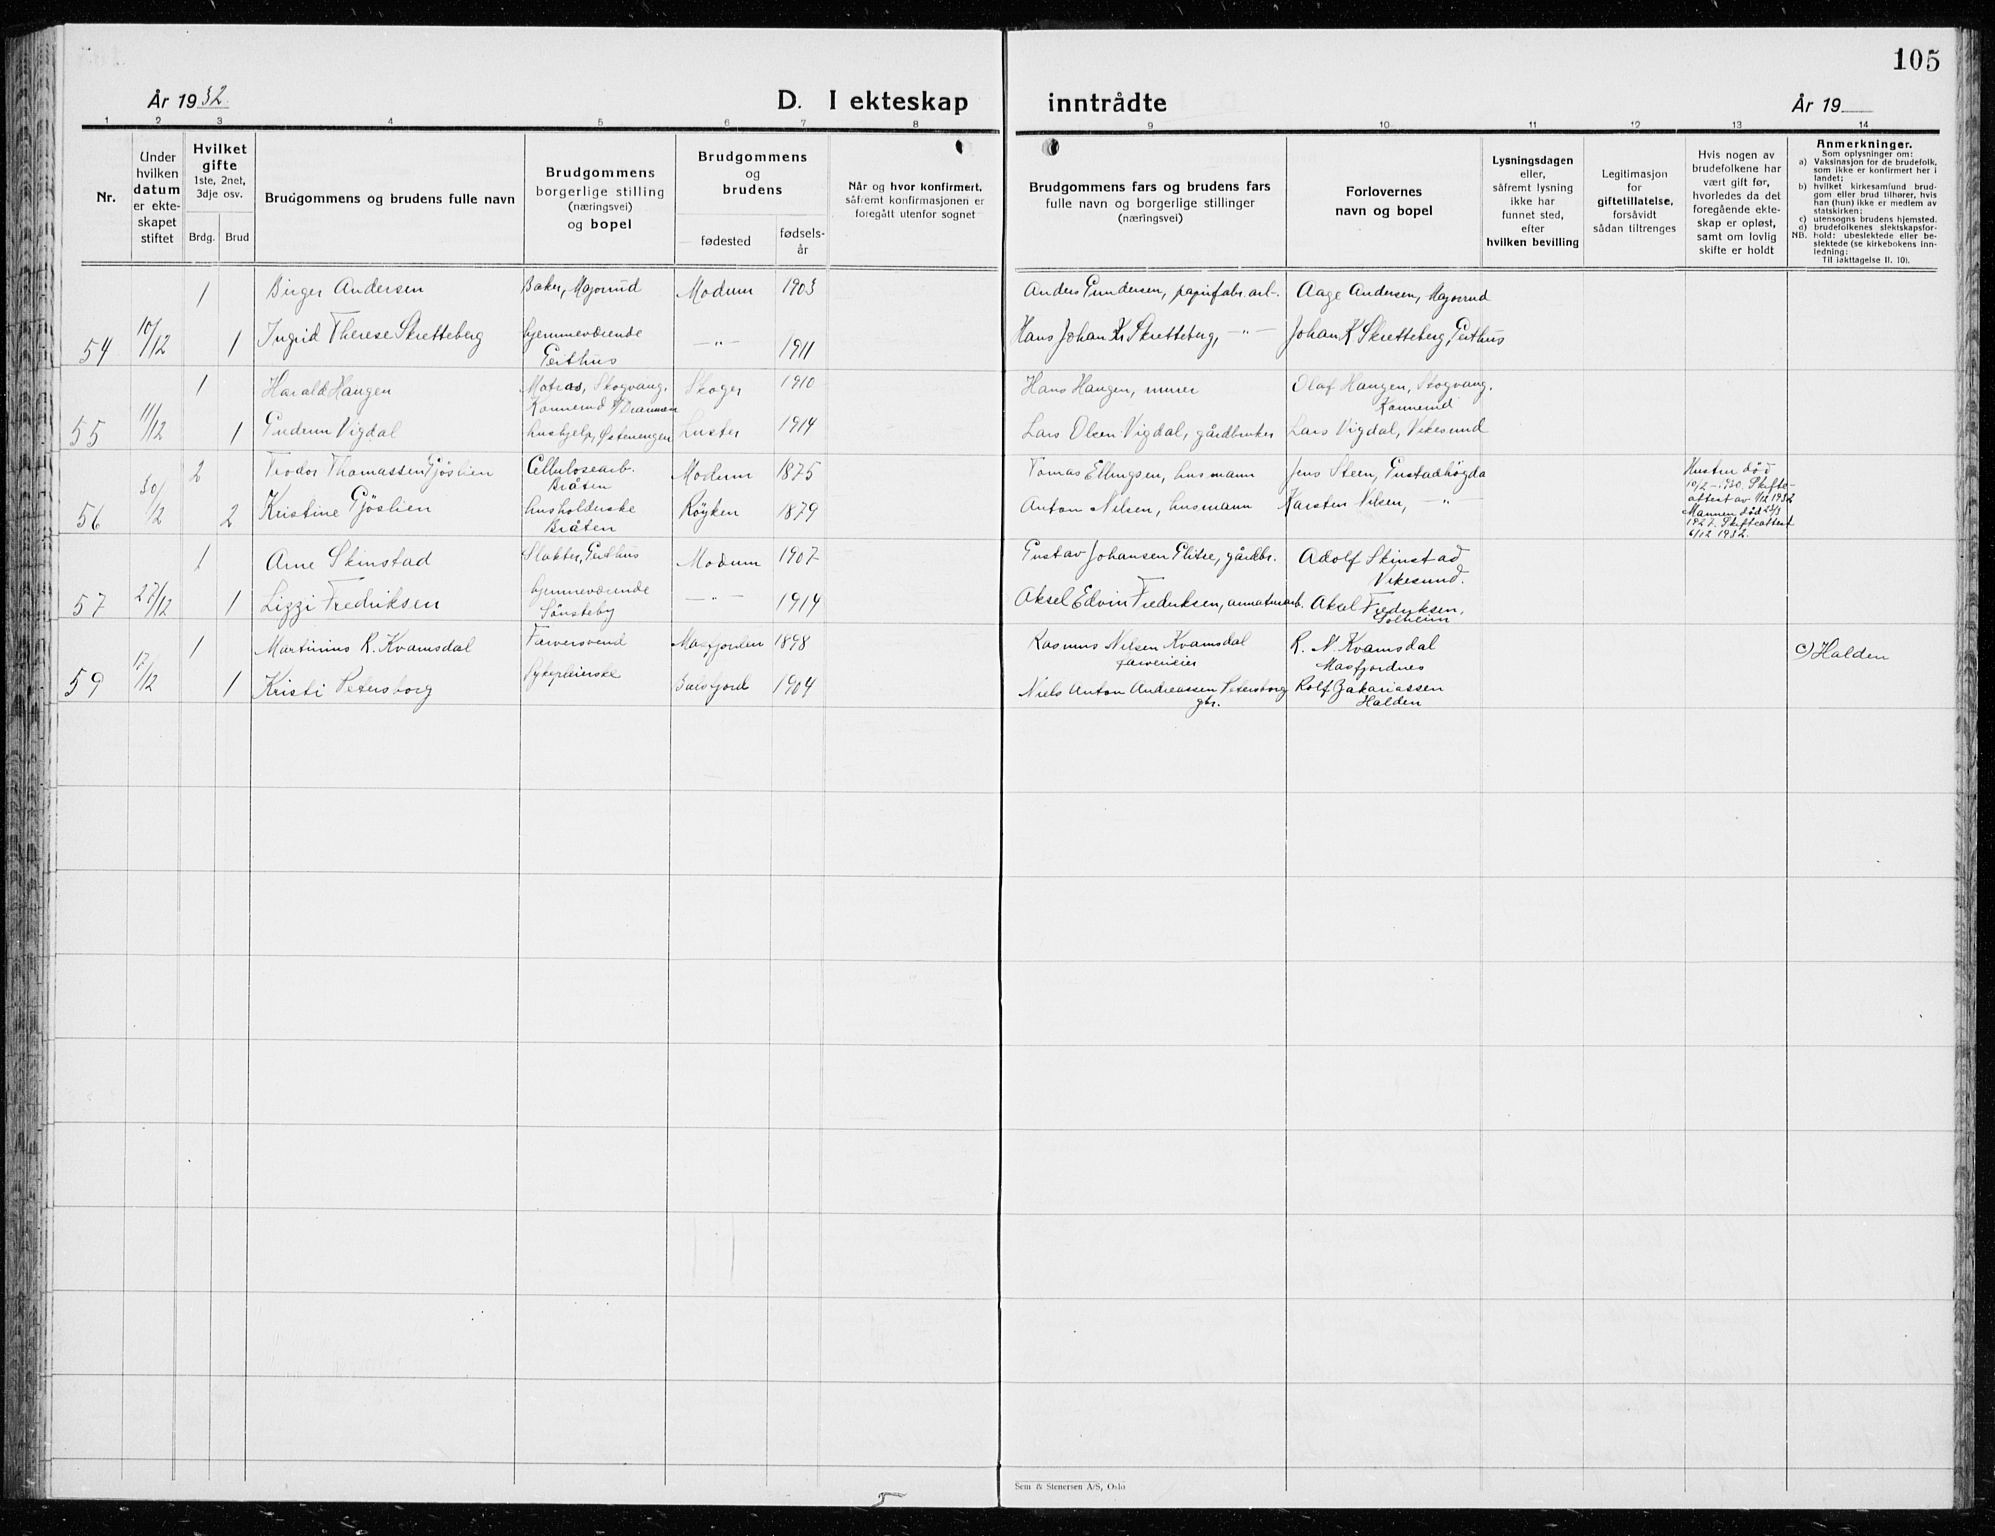 105
År 1932.
D. I ekteskap inntrådte
År 19
1 2 3 4 5 6 7 8 9 10 11 12 13 14
Nr.
Under hvilken datum er ekteskapet stiftet
Hvilket gifte
1ste, 2net, 3dje osv.
Brdg. Brud
Brudgommens og brudens fulle navn
Brudgommens borgerlige stilling (næringsvei) og bopel
Brudgommens og brudens
fødested
fødselsår
Når og hvor konfirmert, såfremt konfirmasjonen er foregått utenfor sognet
Brudgommens fars og brudens fars fulle navn og borgerlige stillinger (næringsvei)
Forlovernes navn og bopel
Lysningsdagen eller, såfremt lysning ikke har funnet sted, efter hvilken bevilling
Legitimasjon for giftetillatelse, forsåvidt sådan tiltrenges
Hvis nogen av brudefolkene har vært gift før, hvorledes da det foregående ekteskap er opløst, samt om lovlig skifte er holdt
Anmerkninger.
Som oplysninger om:
a) Vaksinasjon for de brudefolk, som ikke er konfirmert her i landet;
b) hvilket kirkesamfund brudgom eller brud tilhører, hvis han (hun) ikke er medlem av statskirken;
c) utensogns brudens hjemsted.
d) brudefolkenes slektskapsforhold: ubeslektede eller beslektede (se kirkebokens innledning:
NB.
Til iakttagelse II. 10).
1 Birger Andersen Baker, Majorud Modum 1903 Anders Gundersen, papirfabr. arb. Aage Andersen, Majorud
54 10/12 1 Ingrid Therese Skretteberg hjemmeværende Geithus —"— 1911 Hans Johan Kr Skretteberg, —"— Johan K Skretteberg, Geithus
1 Harald Haugen Matros, Skogvang. Konnerud p/Drammen Skoger 1910 Hans Haugen, murer Olaf Haugen, Skogvang. Konnerud
55 11/12 1 Gudrun Vigdal hushjelp, Østenengen Luster 1914 Lars Olsen Vigdal, gårdbruker Lars Vigdal, Vikesund
2 Teodor Thomassen Gjöslien Cellulosearb. Bråten Modum 1875 Tomas Ellingsen, husmann Jens Steen, Gustadhögda Hustru död 10/2-1930. Skifteattest av 1/12 1932
56 30/12 2 Kristine Gjöslien husholderske Bråten Röyken 1879 Anton Nilsen, husmann Karsten Nilsen, —"— Mannen död 1927. Skifteattest 6/12 1932.
1 Arne Skinstad Slakter, Geithus Modum 1907 Gustav Johansen Glitre, gårdbr. Adolf Skinstad Vikesund.
57 27/12 1 Lizzi Fredriksen hjemmeværende Sönsteby —"— 1914 Aksel Edvin Fredriksen, armaturarb. Aksel Fredriksen, Solheim
1 Martinius R. Kvamsdal Farversvend Masfjorden 1898 Rasmus Nilsen Kvamsdal farverieier R. N. Kvamsdal Masfjordnes c) Halden
59 17/12 1 Kristi Petersborg Sykepleierske Balsfjord 1904 Niels Anton Andreassen Petersborg gbr. Rolf Zakariassen Halden
Sem & Stenersen A/S, Oslo
5